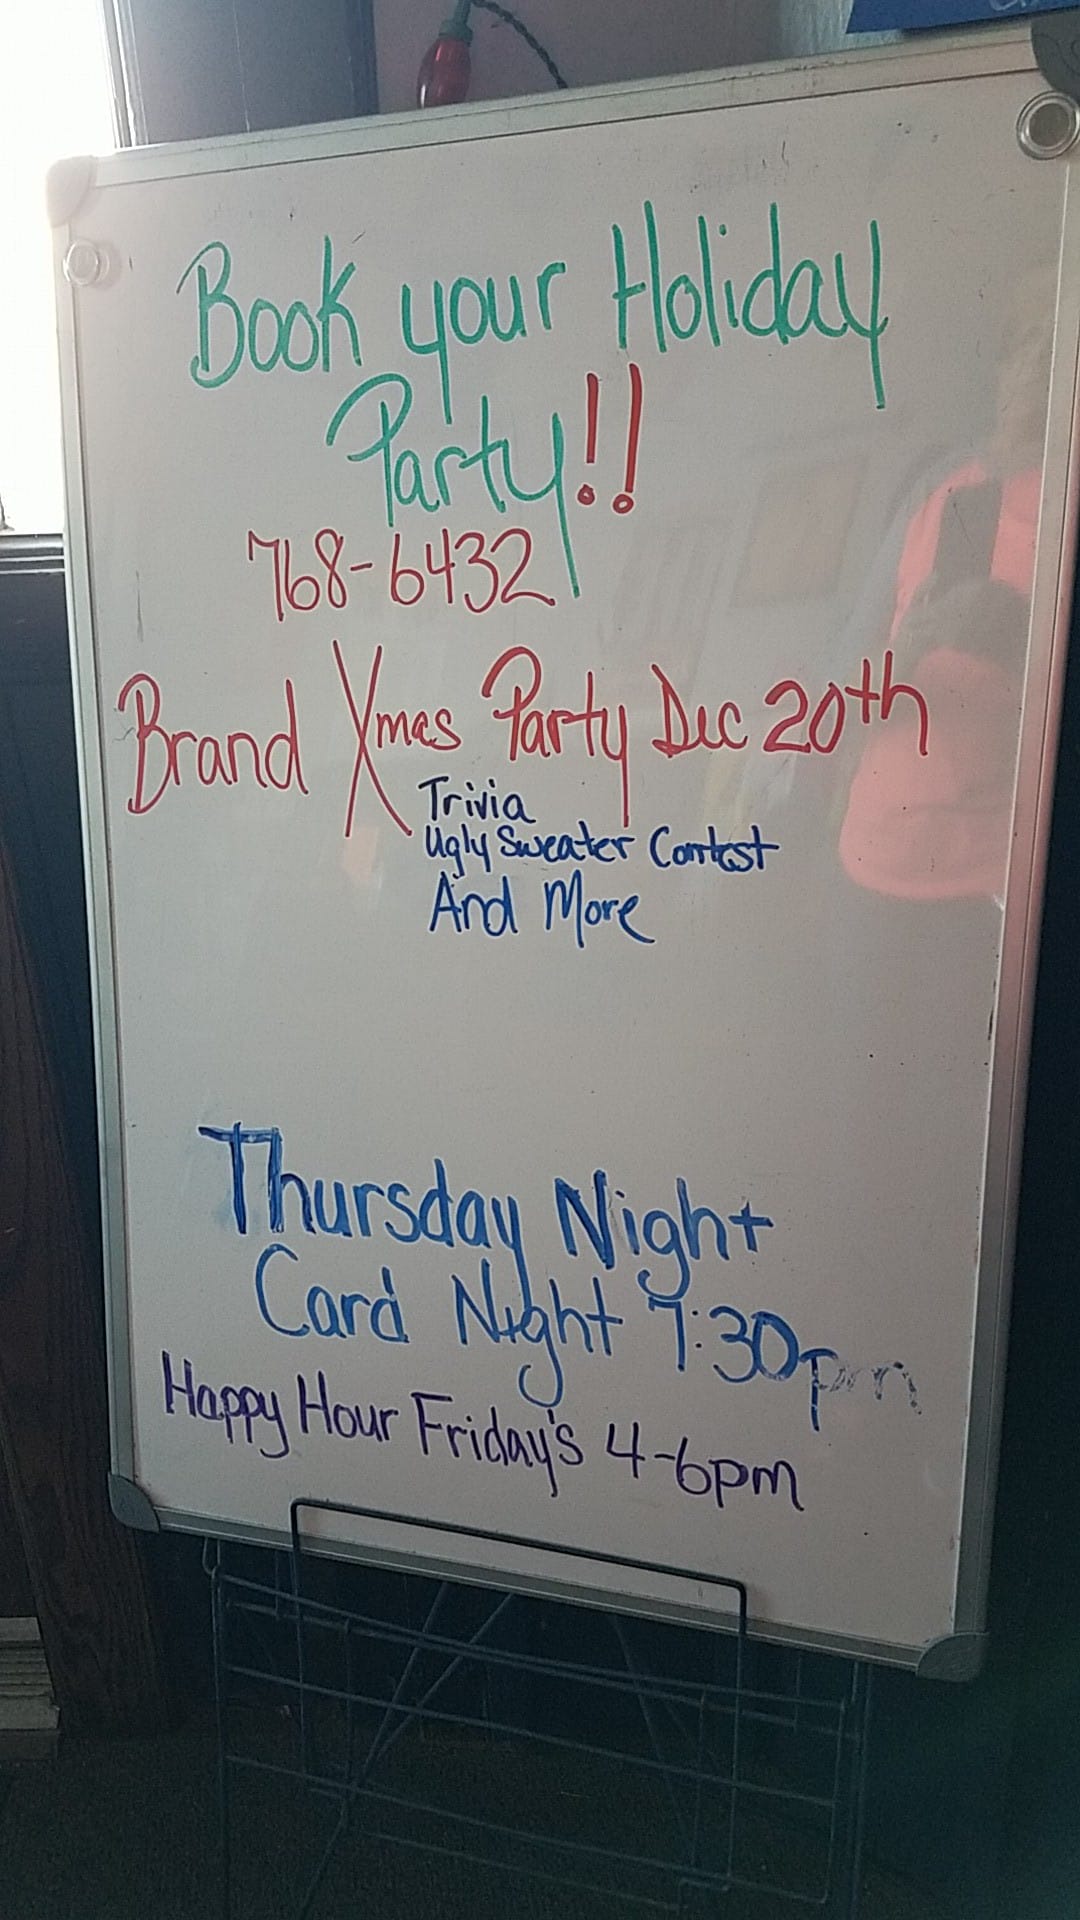 Book your Holiday
Party!!
768-6432
Brand Xmas Party Dec 20th
Trivia
Ugly Sweater Contest
And More
Thursday Night
Card Night 7:30pm
Happy Hour Friday's 4-6pm